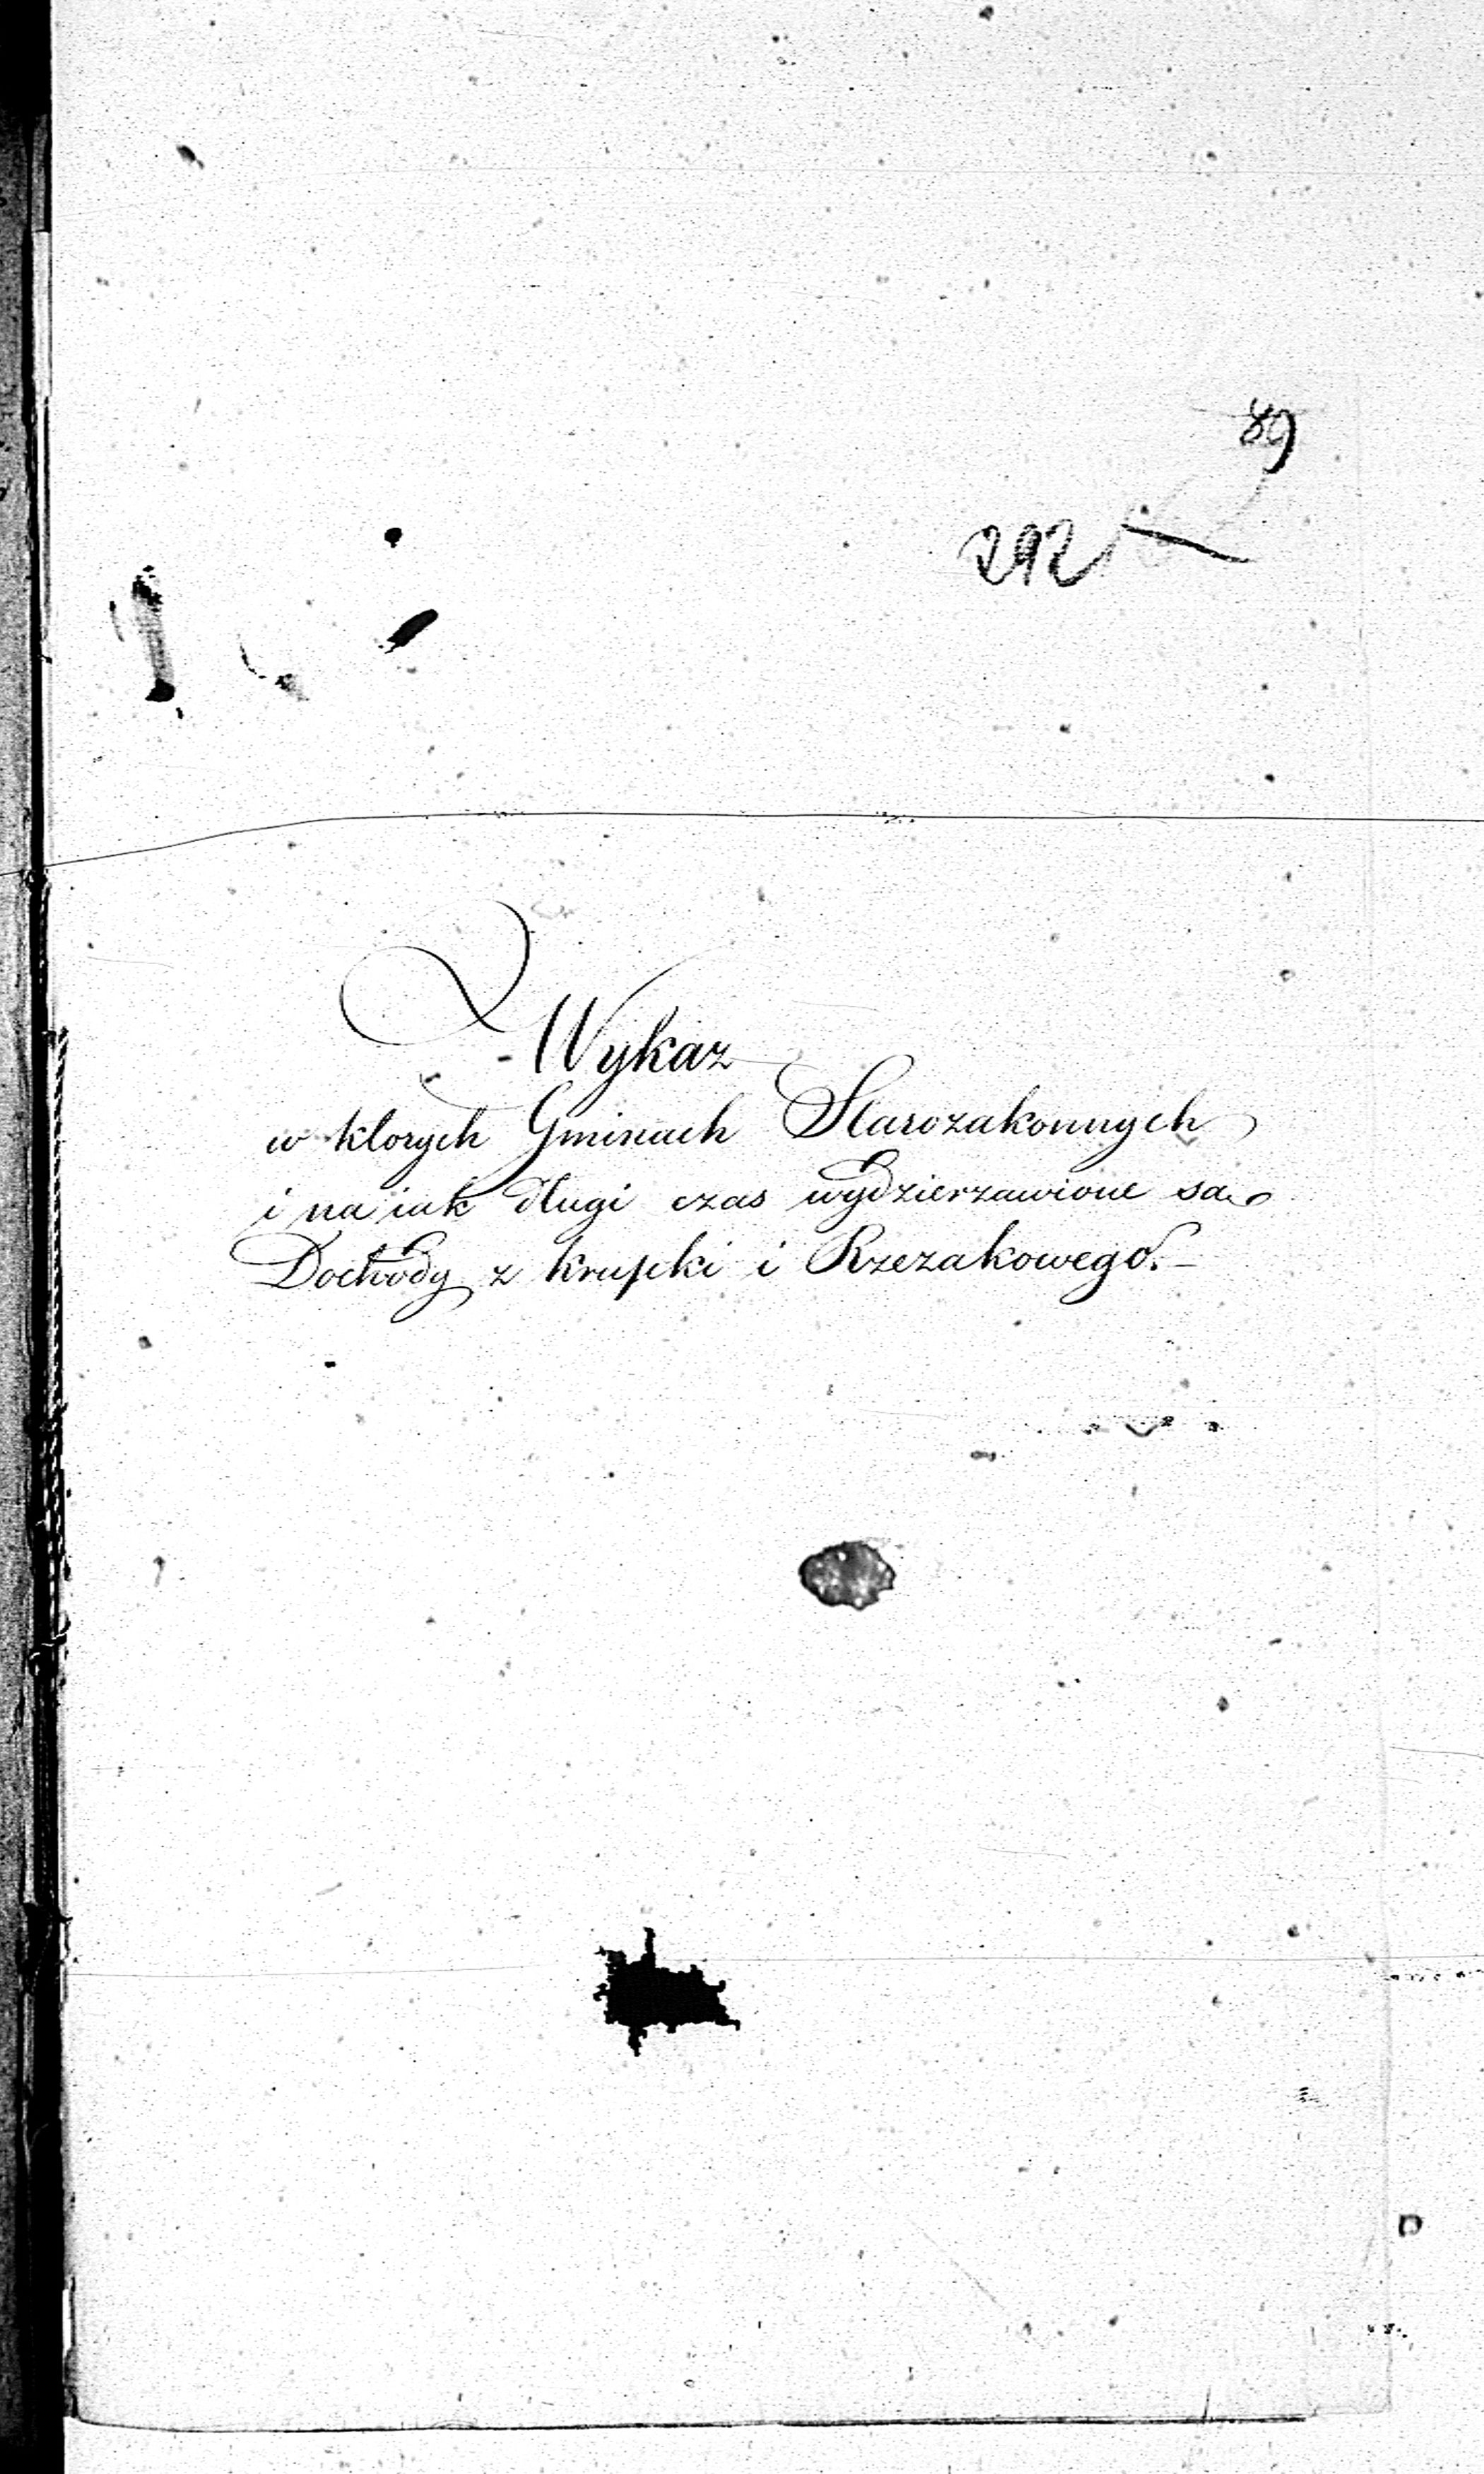 89
292
Wykaz
w ktorych Gminach Starozakonnych
i na iak długi czas wydzierzawione sa
Dochody z krupki i Rzezakowego.